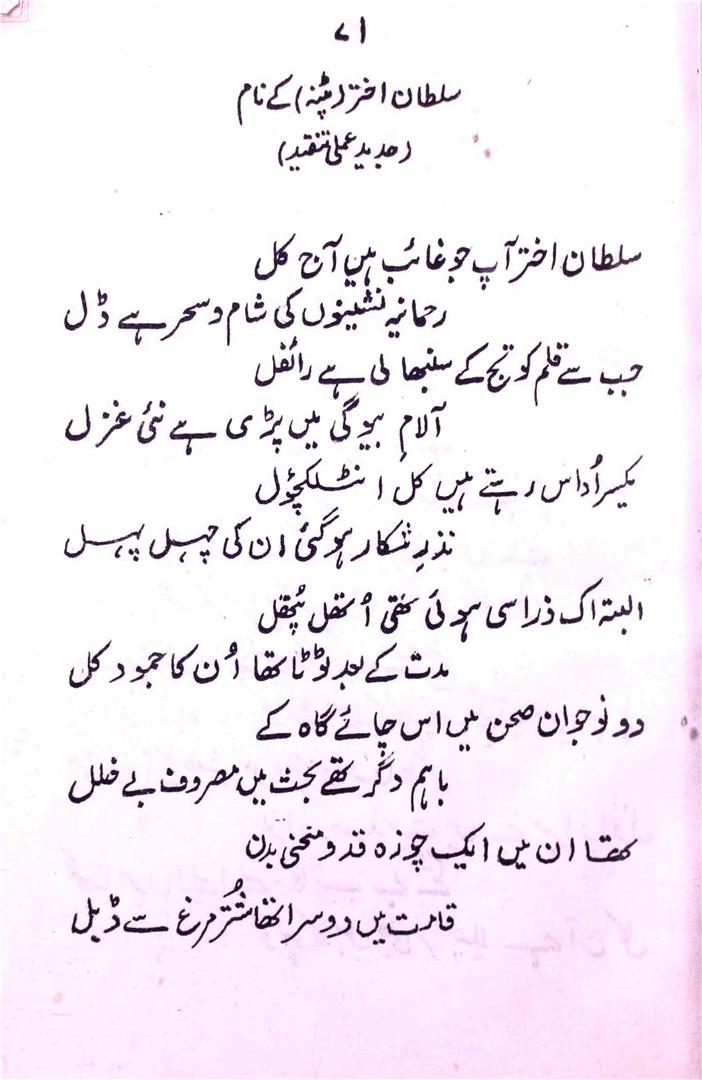 ۷۱
سلطان اختر (پٹنہ) کے نام
(جدید عملی تنقید)
سلطان اختر آپ جو غائب ہیں آج کل
رحمانیہ نشینوں کی شام و سحر ہے ڈل
جب سے قلم کو تج کے سنبھالی ہے رائفل
آلامِ بیوگی میں پڑی ہے نئی غزل
یکسر اُداس رہتے ہیں کل انٹلکچوُل
نذرِ شکار ہوگئی ان کی چہل پہل
البتہ اک ذرا سی ہوئی تھی اُتھل پُتھل
مدت کے بعد ٹوٹا تھا اُن کا جمود کل
دو نوجوان صحن میں اس چائے گاہ کے
باہم دگر تھے بحث میں مصروف بے خلل
تھا ان میں ایک چوزہ قد و منحنی بدن
قامت میں دوسرا تھا شتُر مرغ سے ڈبل